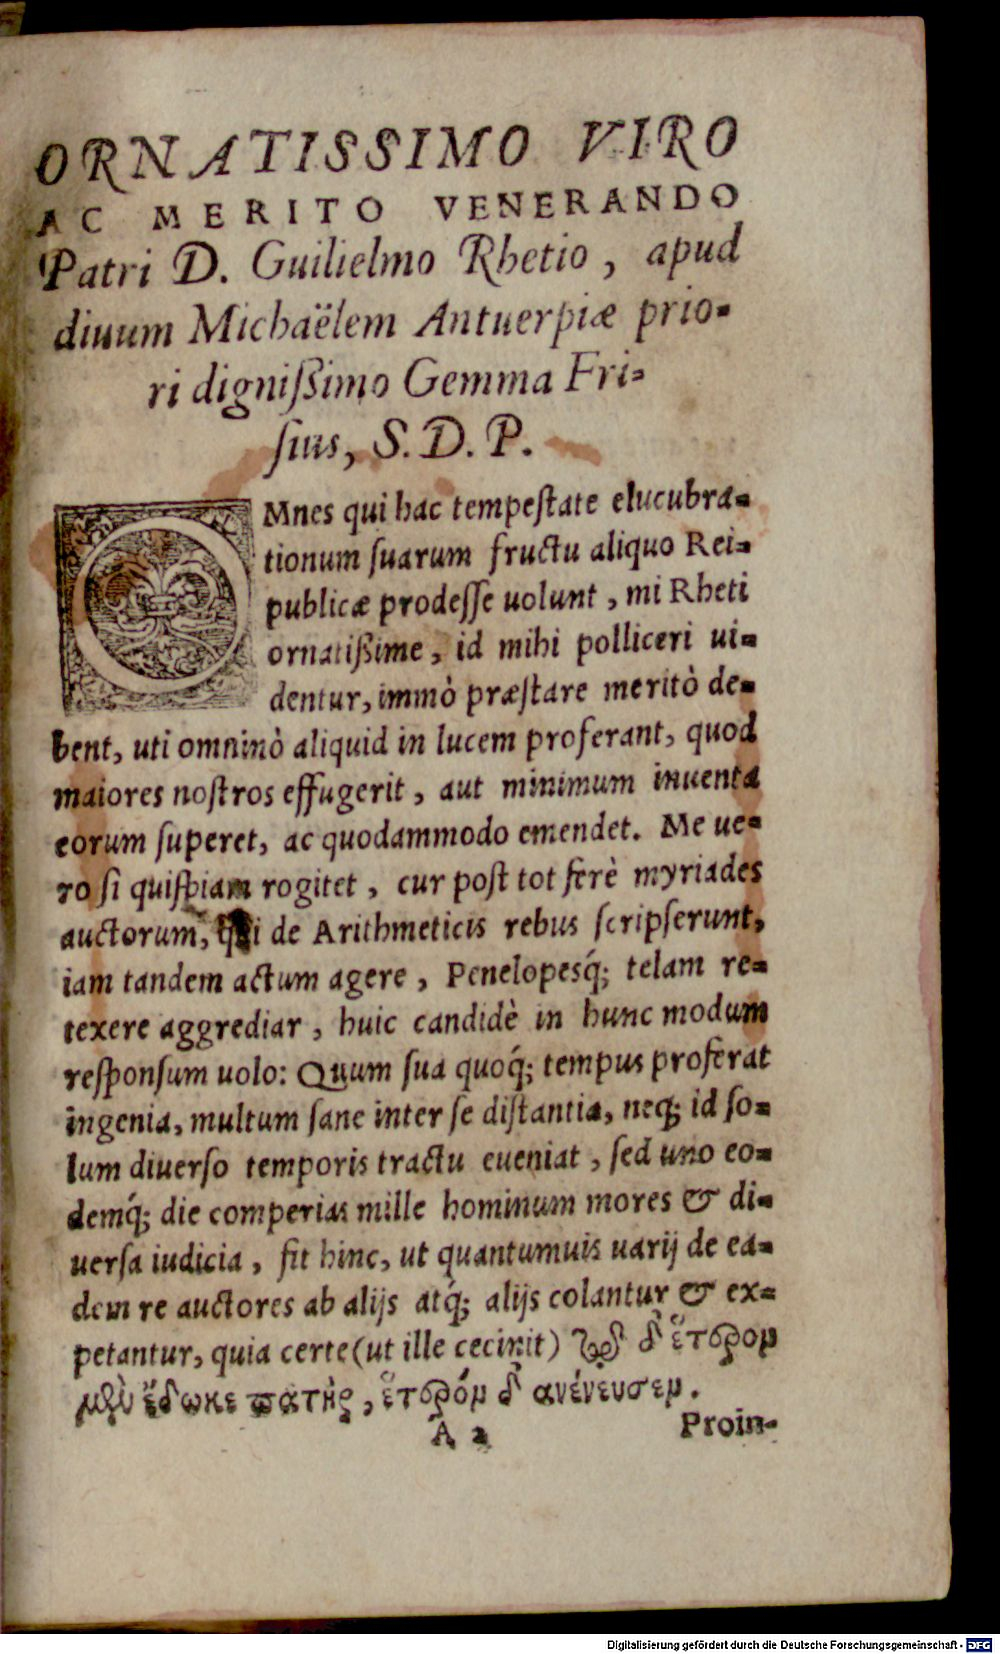 ORNATISSIMO VIRO
AC MERITO VENERANDO
Patri D. Guilielmo Rhetio, apud
diuum Michaëlem Antuerpiæ prio-
ri dignißimo Gemma Fri-
ſius, S. D. P.
OMnes qui hac tempeſtate elucubra-
tionum ſuarum fructu aliquo Rei-
publicæ prodeſſe uolunt, mi Rheti
ornatißime, id mihi polliceri ui-
dentur, immò præſtare meritò de-
bent, uti omninò aliquid in lucem proferant, quod
maiores noſtros effugerit, aut minimum inuenta
eorum ſuperet, ac quodammodo emendet. Me ue-
ro ſi quiſpiam rogitet, cur poſt tot ferè myriades
auctorum, qui de Arithmeticis rebus ſcripſerunt,
iam tandem actum agere, Penelopesq́; telam re-
texere aggrediar, huic candidè in hunc modum
reſponſum uolo: Quum ſua quoq́; tempus proferat
ingenia, multum ſane inter ſe diſtantia, neq; id ſo-
lum diuerſo temporis tractu eueniat, ſed uno eo-
demq́; die comperias mille hominum mores & di-
uerſa iudicia, fit hinc, ut quantumuis uarij de ea-
dem re auctores ab alijs atq́; alijs colantur & ex-
petantur, quia certe (ut ille cecinit) δ' ἕτερον
μὲν ἔδωκε πατὴρ, ἕτερόν δ' ανένευσεν.
A 2
Proin-
Digitalisierung gefördert durch die Deutsche Forschungsgemeinschaft - DFG